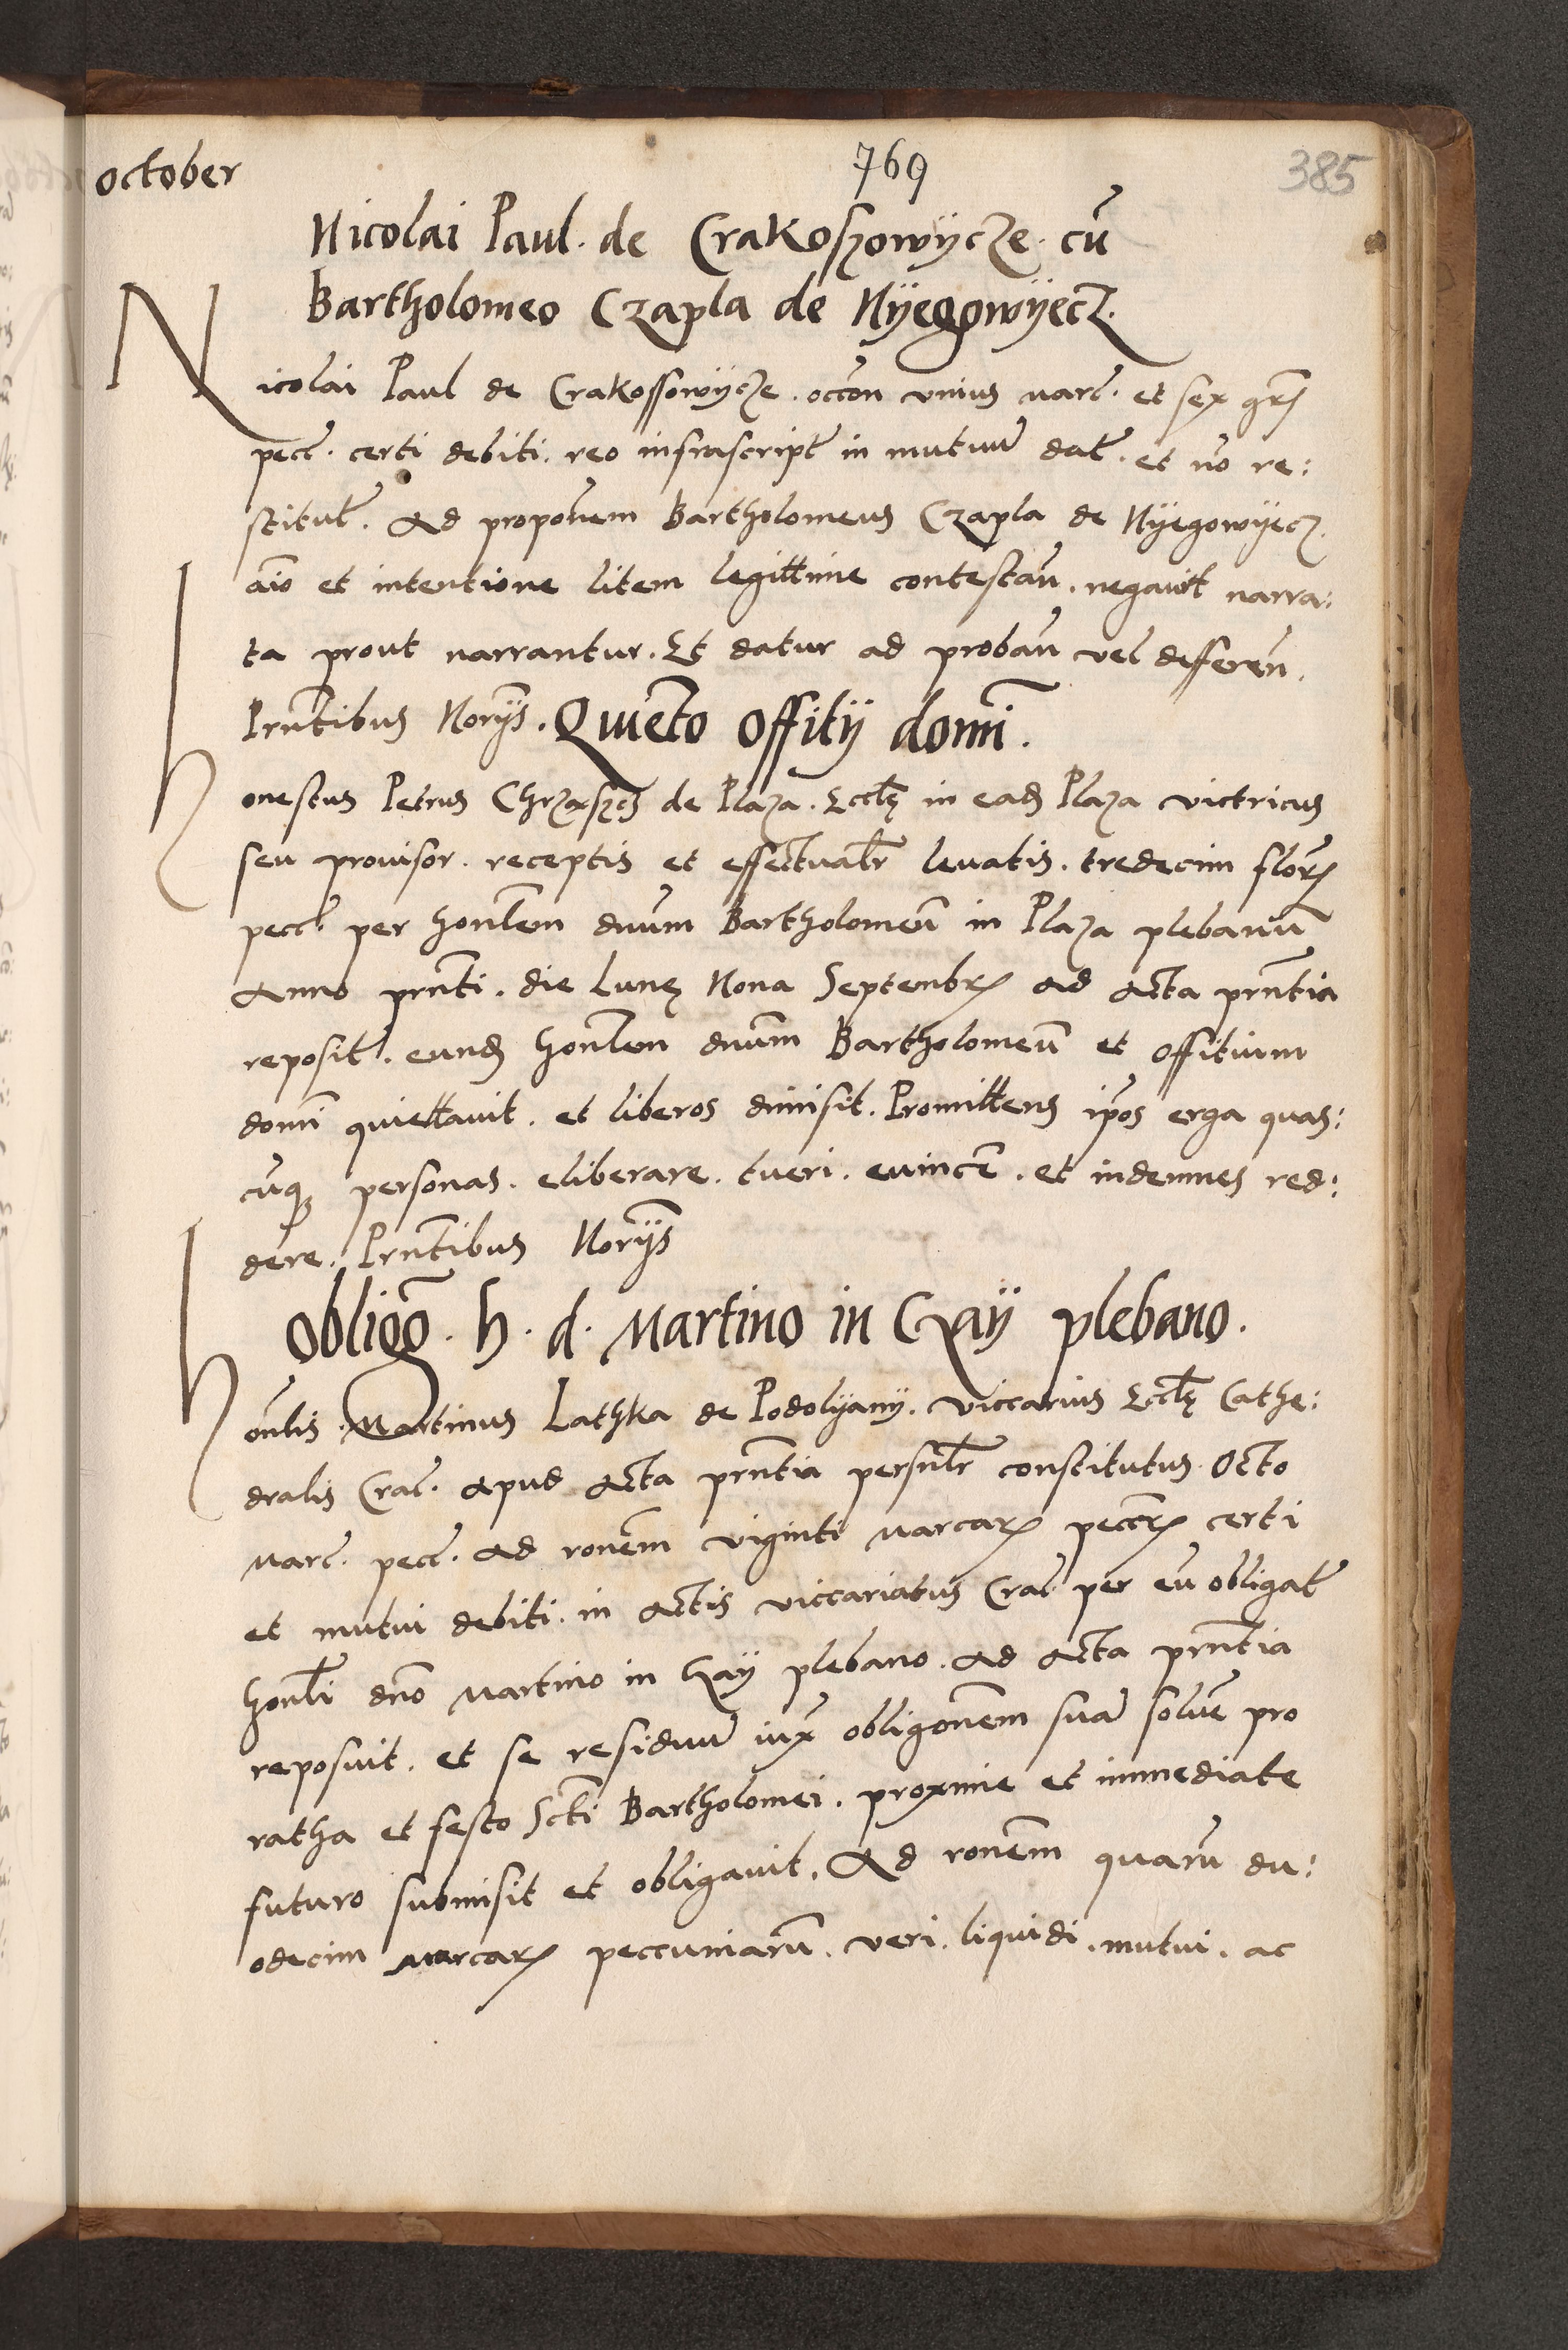 October
769
385
Nicolai Paul. de Crakoszowÿcze. cū
Bartholomeo Czapla de Nÿegowÿecz.
Nicolai Paul de Crakossowÿcze. occōn vnius marc. et sex grꝭ
pecc. certi debiti. reo infrascript̄ in mutuū dat̄. et nō re:
stitut̄. Ad propōnem Bartholomeus Czapla de Nÿegowÿecz.
aīo et intentione litem legittime contestan̄. negauit narra:
ta prout narrantur. Et datur ad proban̄ vel defferen̄.
Prn̄tibus Norÿs. Quietō Offitÿ domī.
Honestus Petrus Chrząszcz de Plaza. Eccl̄ę in ead Plaza victricus
seu prouisor. receptis et effectual̄r leuatis. tredecim florꝭ
pecc. per honl̄em dnūm Bartholomeū in Plaza plebanū
Anno prn̄ti. die Lunę Nona Septembrꝭ ad acta prn̄tia
reposit̄. eund honl̄em dnūm Bartholomeū et Offitium
domī quiettauit. et liberos dimisit. Promittens ip̄os erga quas:
cūqꝫ personas. eliberare. tueri. euincē. et indemnes red:
dere. Prn̄tibus Norÿs
Obligō. h. d. Martino in Gay plebano.
Honl̄is Martinus Lathka de Podolyanÿ. viccarius Eccl̄ę Cathe:
dralis Crac. apud acta prn̄tia persnl̄r constitutus. Octo
marc. pecc. ad ronēm viginti marcarꝭ peccrꝭ certi
et mutui debiti. in actis viccariatus Crac. per eū obligat̄
honl̄i dnō Martino in Gaÿ plebano. ad acta prn̄tia
reposuit. et se residuū iux̄ obligonēm suā soluē pro
ratha et festo Sctī Bartholomei. proxime et immediate
futuro submisit et obligauit. Ad ronēm quarū du:
odecim marcarꝭ peccuniarū. veri. liquidi. mutui. ac